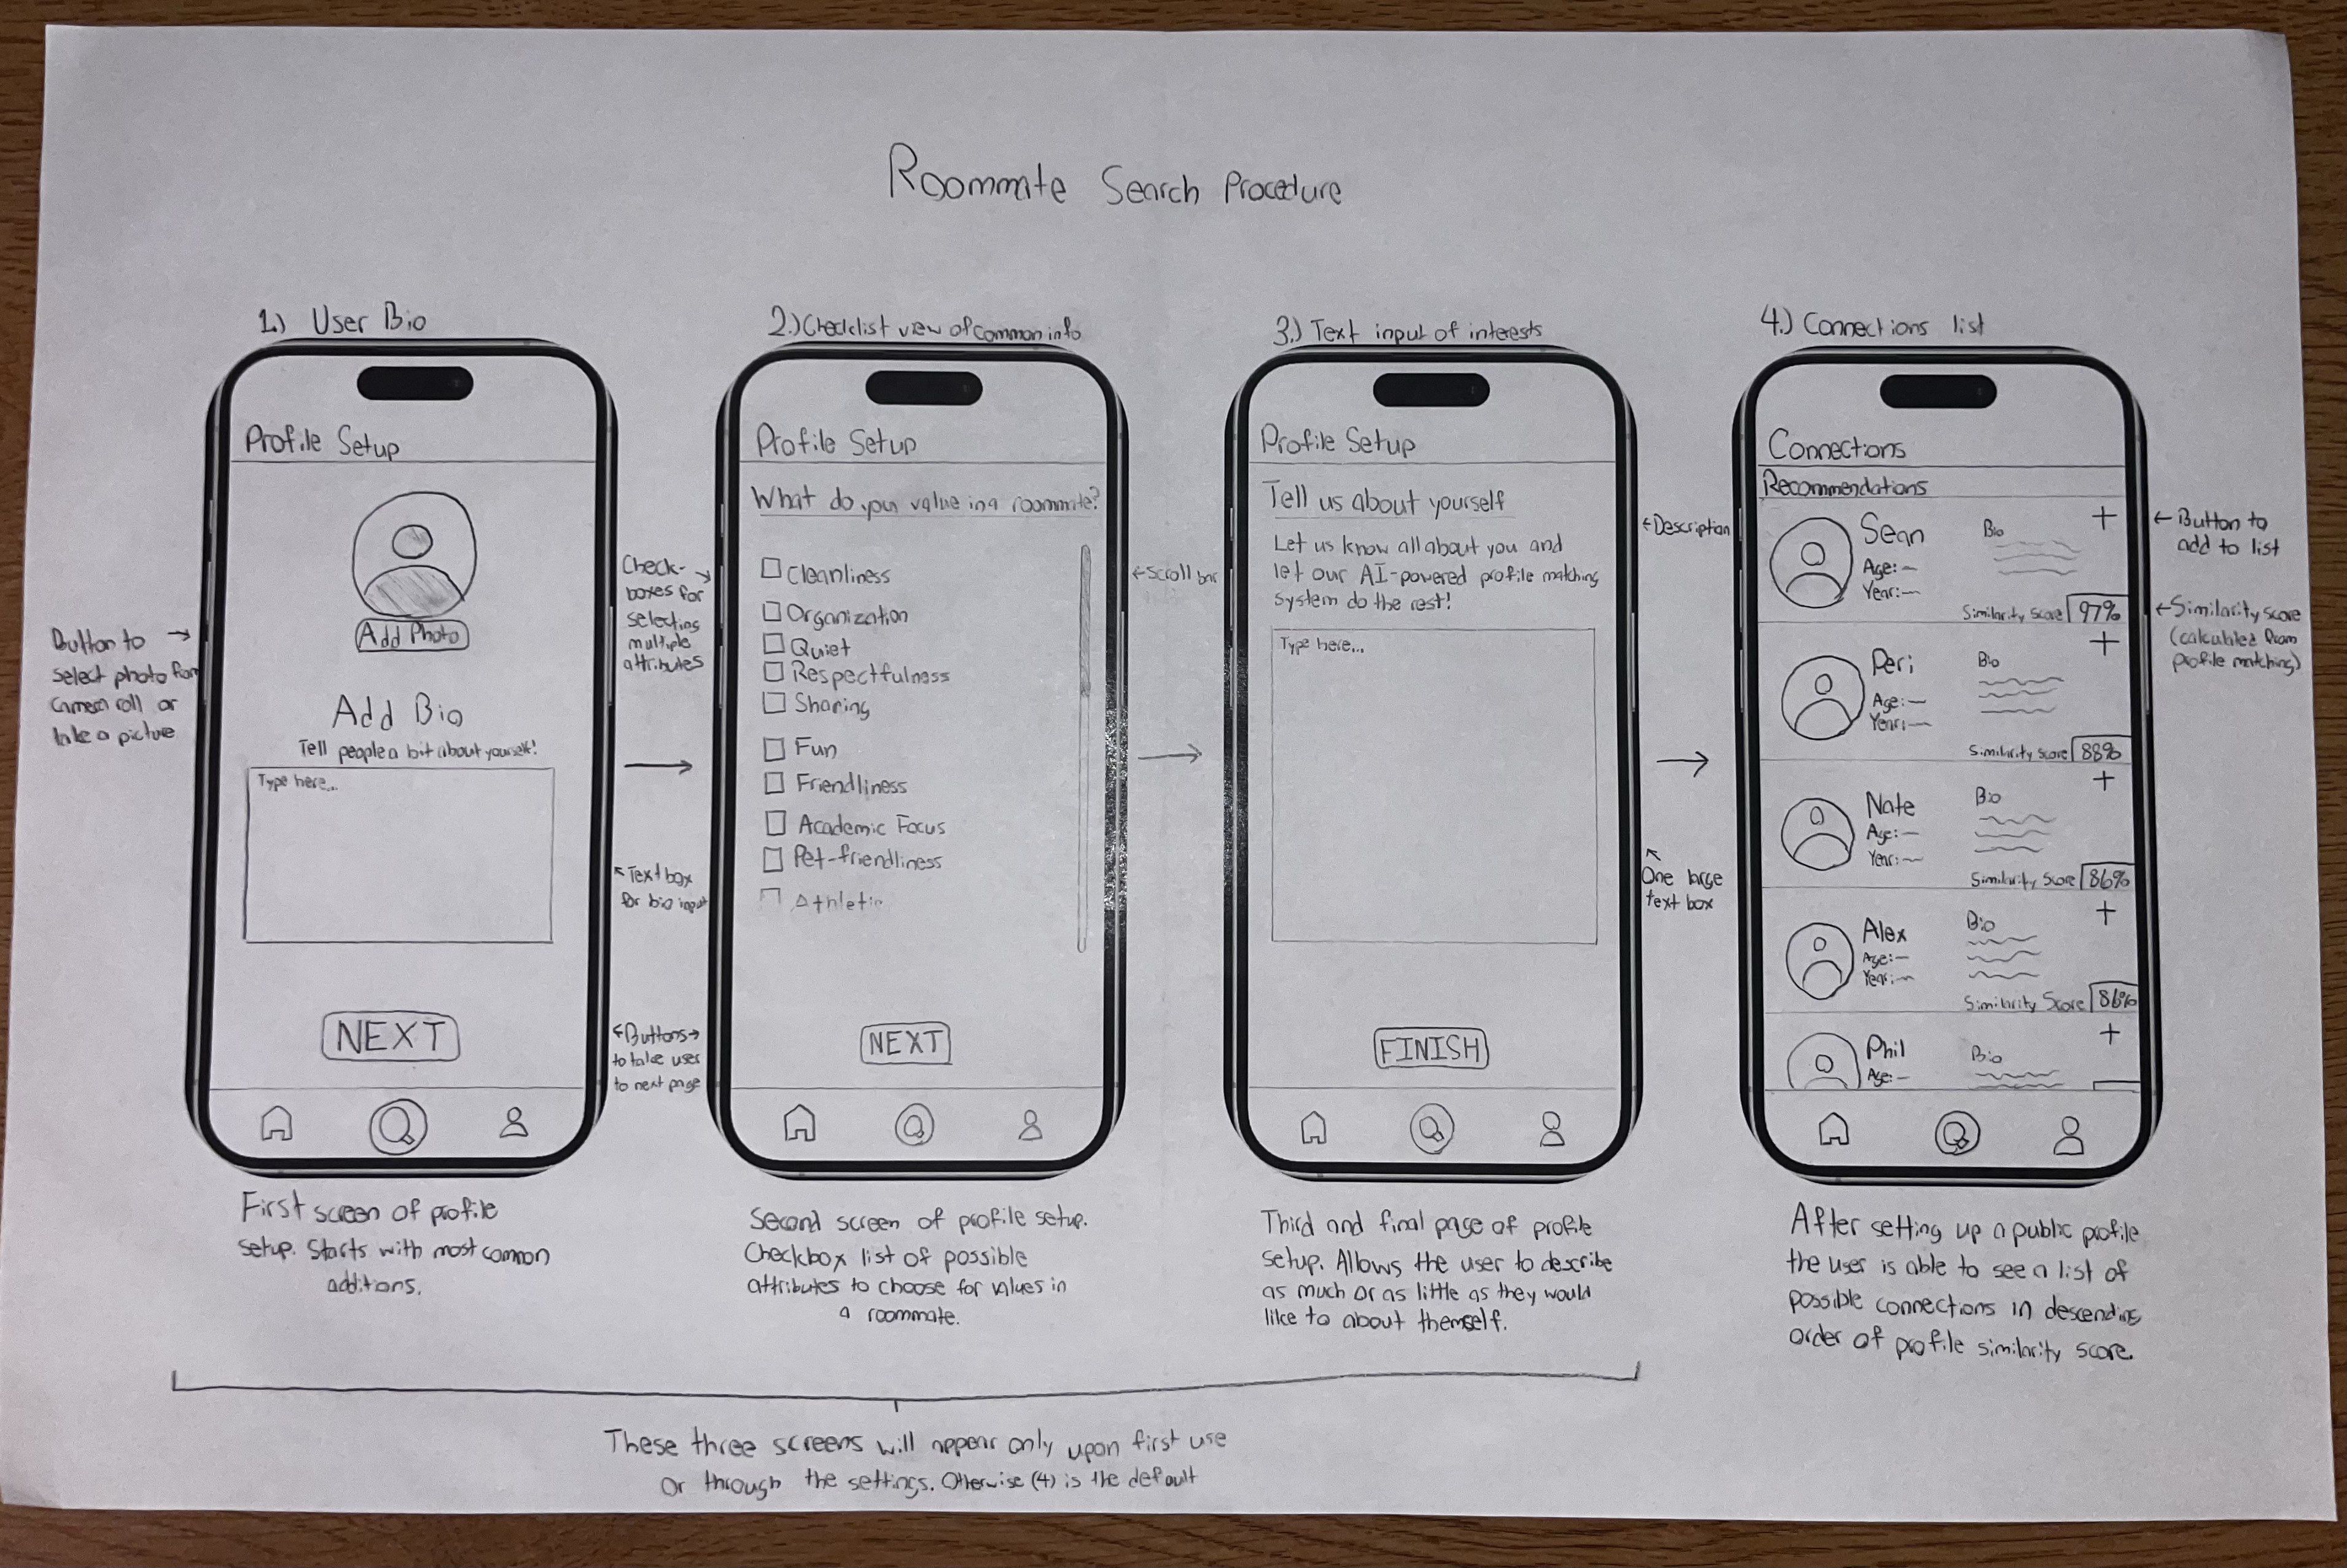 Roommate Search Procedure
1.) User Bio
Profile Setup
Add Photo
Add Bio
Tell people a bit about yourself!
Type here...
NEXT
Button to →
select photo from
camera roll or
take a picture
First screen of profile
setup. Starts with most common
additions.
Check- →
boxes for
selecting
multiple
attributes
↖ Text box
for bio input
← Buttons →
to take user
to next page
2.) Checklist view of common info
Profile Setup
What do you value in a roommate?
Cleanliness
Organization
Quiet
Respectfulness
Sharing
Fun
Friendliness
Academic Focus
Pet-friendliness
Athletic
NEXT
← Scroll bar
Second screen of profile setup.
Checkbox list of possible
attributes to choose for values in
a roommate.
3.) Text input of interests
Profile Setup
Tell us about yourself
Let us know all about you and
let our AI-powered profile matching
system do the rest!
Type here...
FINISH
← Description
↖
One large
text box
Third and final page of profile
setup. Allows the user to describe
as much or as little as they would
like to about themself.
4.) Connections list
Connections
Recommendations
Sean Bio +
Age: —
Year: —
Similarity Score 97%
Peri Bio +
Age: —
Year: —
Similarity Score 88%
Nate Bio +
Age: —
Year: —
Similarity Score 86%
Alex Bio +
Age: —
Year: —
Similarity Score 86%
Phil Bio +
Age: —
← Button to
add to list
← Similarity score
(calculated from
profile matching)
After setting up a public profile
the user is able to see a list of
possible connections in descending
order of profile similarity score.
These three screens will appear only upon first use
or through the settings. Otherwise (4) is the default